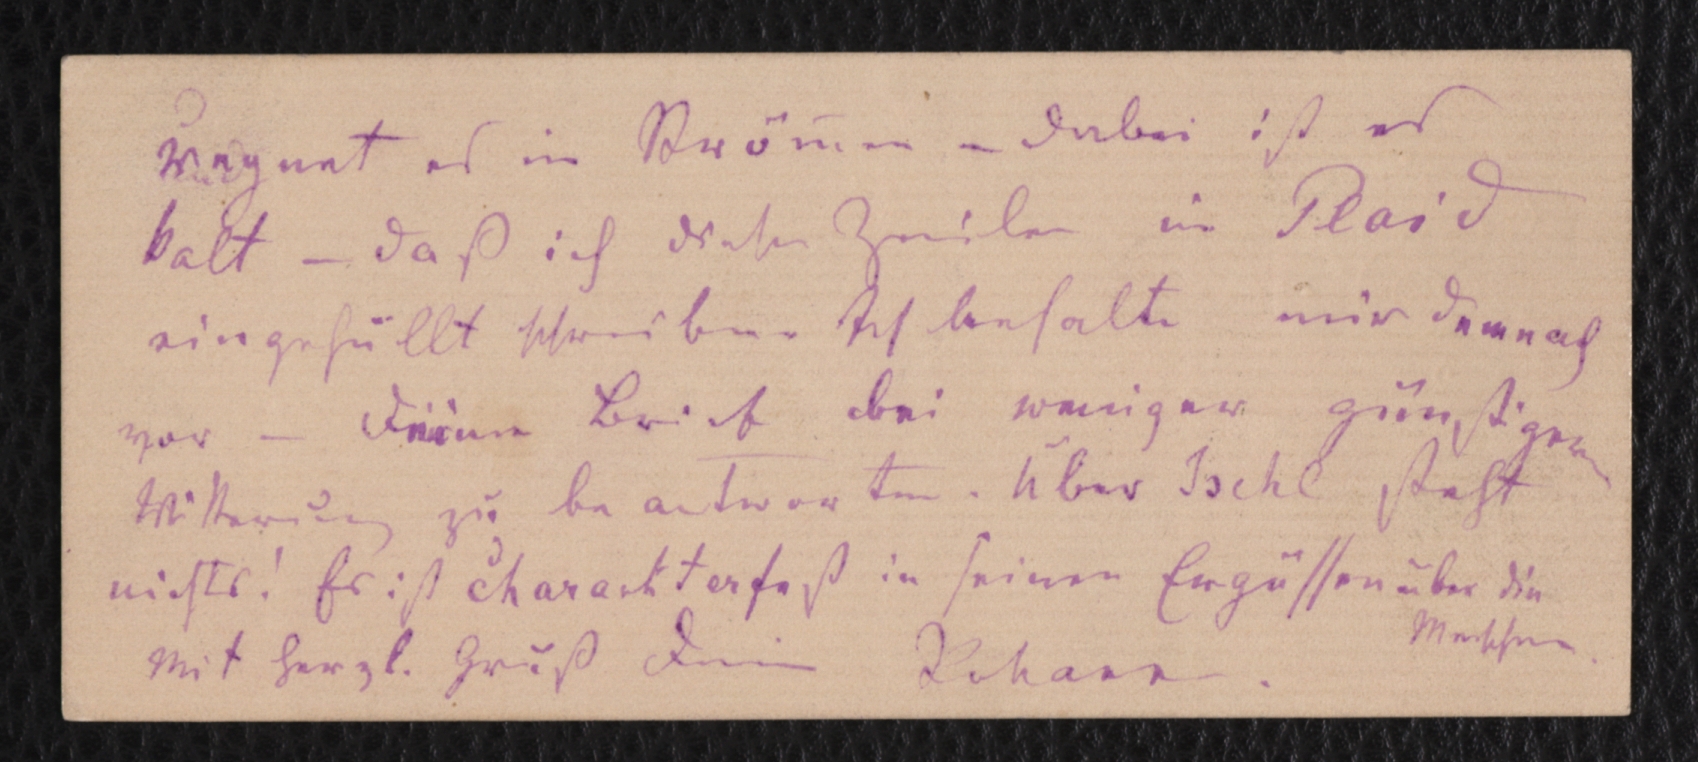 regnet es in Strömen – dabei ist es
kalt – daß ich diese Zeilen im Plaid
eingehüllt schreibe. Ich behalte mir demnach
vor – Deinen Brief bei weniger günstigen
Witterung zu beantworten. Über Ischl steht
nichts! Es ist charackterfest in seinen Ergüssen über die
Menschen.
Mit herzl. Gruß Dein Johann.